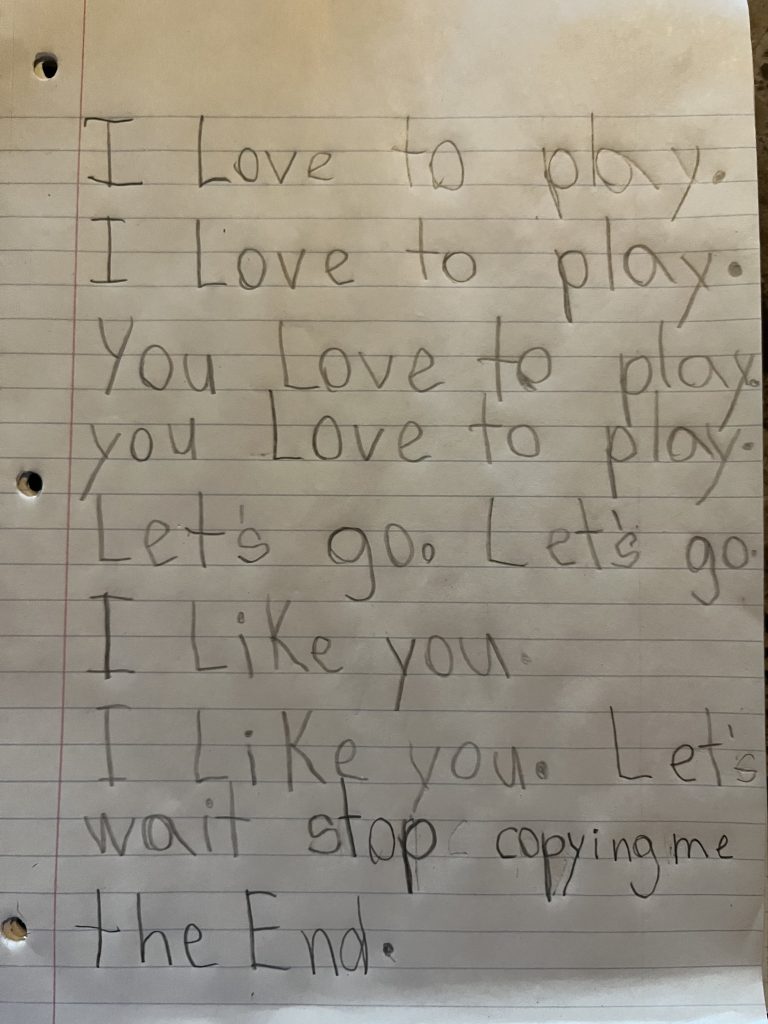 I Love to play.
I Love to play.
You Love to play.
you Love to play.
Let's go. Let's go.
I Like you.
I Like you. Let's
wait stop copying me
the End.